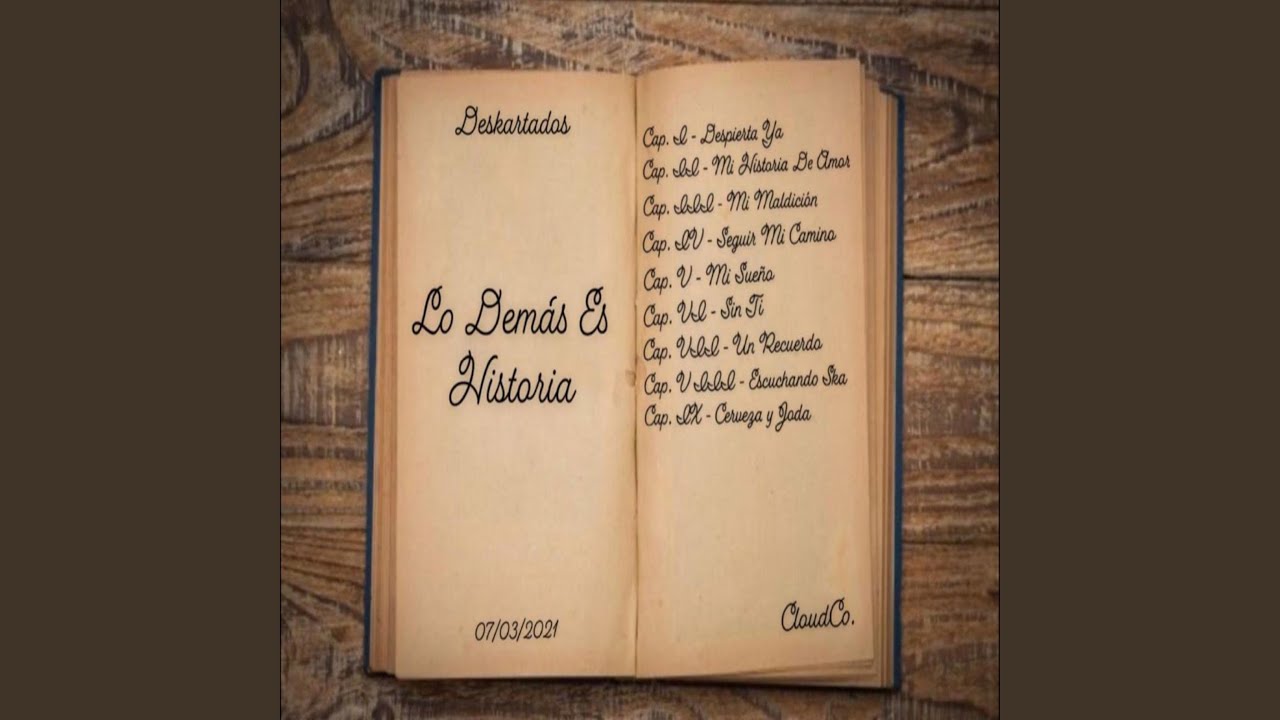 Deskartados
Lo Demás Es
Historia
07/03/2021
Cap. I - Despierta Ya
Cap. II - Mi Historia De Amor
Cap. III - Mi Maldición
Cap. IV - Seguir Mi Camino
Cap. V - Mi Sueño
Cap. VI - Sin Ti
Cap. VII - Un Recuerdo
Cap. VIII - Escuchando Ska
Cap. IX - Cerveza y Joda
CloudCo.